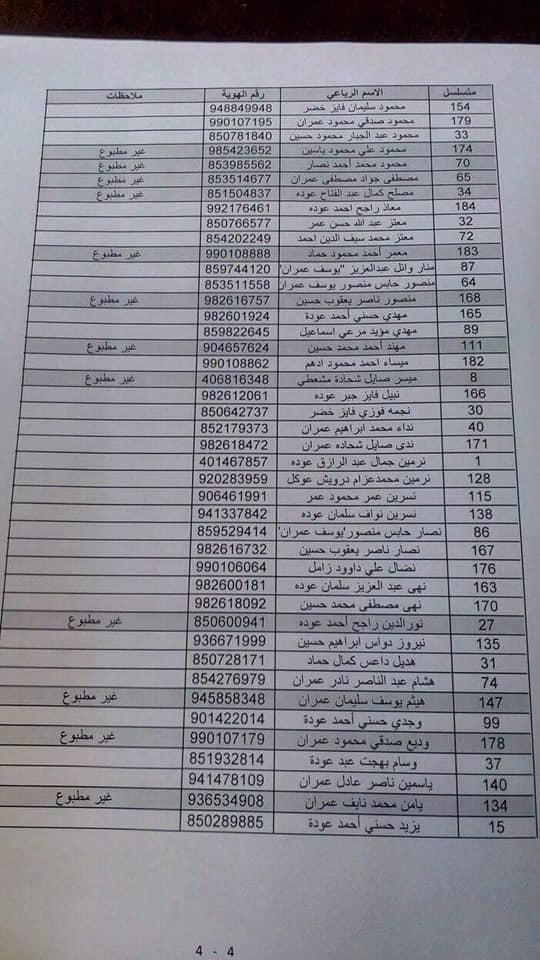 متسلسل الاسم الرباعي رقم الهوية ملاحظات
154 محمود سليمان فايز خضر 948849948
179 محمود صدقي محمود عمران 990107195
33 محمود عبد الجبار محمود حسين 850781840
174 محمود علي محمود ياسين 985423652 غير مطبوع
70 محمود محمد أحمد نصار 853985562 غير مطبوع
65 مصطفى جواد مصطفى عمران 853514677 غير مطبوع
34 مصلح كمال عبد الفتاح عوده 851504837 غير مطبوع
184 معاذ راجح احمد عوده 992176461
32 معتز عبد الله حسن عمر 850766577
72 معتز محمد سيف الدين احمد 854202249
183 معمر أحمد محمود حماد 990108888 غير مطبوع
87 منار وائل عبدالعزيز "يوسف عمران" 859744120
64 منصور حابس منصور يوسف عمران 853511558
168 منصور ناصر يعقوب حسين 982616757 غير مطبوع
165 مهدي حسني أحمد عودة 982601924
89 مهدي مؤيد مرعي اسماعيل 859822645
111 مهند أحمد محمد حسين 904657624 غير مطبوع
182 ميساء احمد محمود ادهم 990108862
8 ميسر صايل شحادة مشعطي 406816348 غير مطبوع
166 نبيل فايز جبر عوده 982612061
30 نجمه فوزي فايز خضر 850642737
40 نداء محمد ابراهيم عمران 852179373
171 ندى صايل شحاده عمران 982618472
1 نرمين جمال عبد الرازق عوده 401467857
128 نرمين محمدعزام درويش عوكل 920283959
115 نسرين عمر محمود عمر 906461991
138 نسرين نواف سلمان عوده 941337842
86 نصار حابس منصور"يوسف عمران" 859529414
167 نصار ناصر يعقوب حسين 982616732
176 نضال علي داوود زامل 990106064
163 نهى عبد العزيز سلمان عوده 982600181
170 نهى مصطفى محمد حسين 982618092
27 نورالدين راجح أحمد عوده 850600941 غير مطبوع
135 نيروز دواس ابراهيم حسين 936671999
31 هديل داعس كمال حماد 850728171
74 هشام عبد الناصر نادر عمران 854276979
147 هيثم يوسف سليمان عمران 945858348 غير مطبوع
99 وجدي حسني أحمد عودة 901422014
178 وديع صدقي محمود عمران 990107179 غير مطبوع
37 وسام بهجت عبد عودة 851932814
140 ياسمين ناصر عادل عمران 941478109
134 يامن محمد نايف عمران 936534908 غير مطبوع
15 يزيد حسني أحمد عودة 850289885
4 - 4